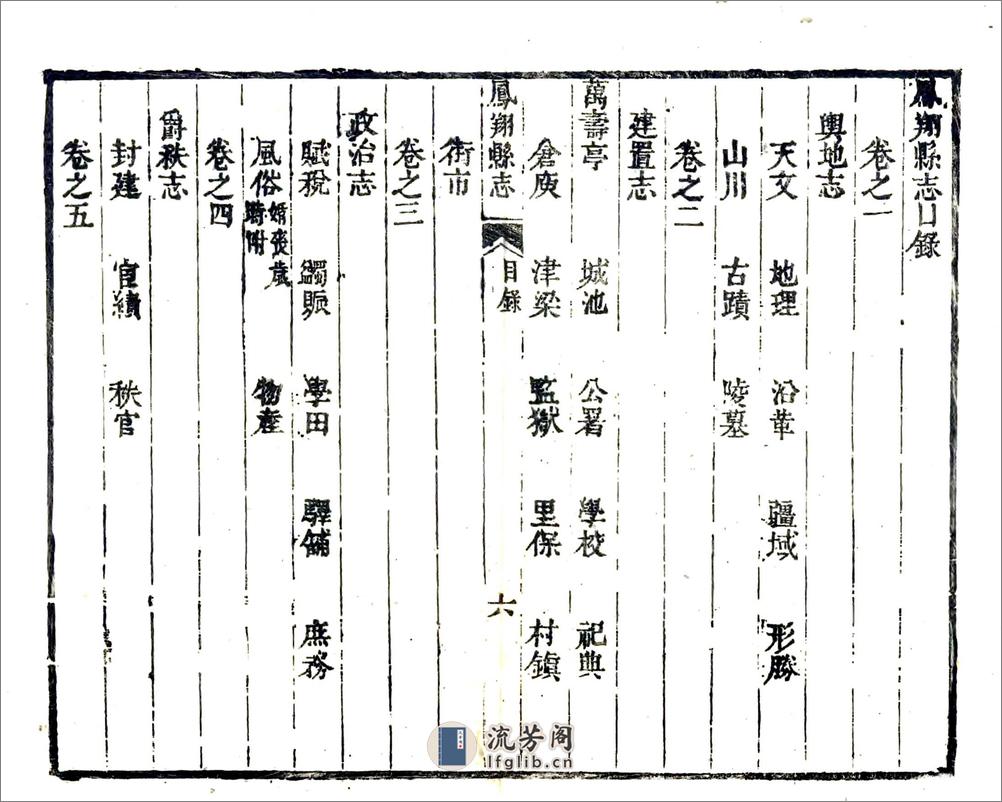 鳳翔縣志目錄
卷之一
輿地志
天文 地理 沿革 疆域 形勝
山川 古蹟 陵墓
卷之二
建置志
萬壽亭 城池 公署 學校 祀典
倉庾 津梁 監獄 里保 村鎮
鳳翔縣志 目錄 六
街市
卷之三
政治志
賦稅 蠲賑 學田 驛舖 庶務
風俗 婚喪歲時附 物產
卷之四
爵秩志
封建 官績 秩官
卷之五
流芳阁
lfglib.cn